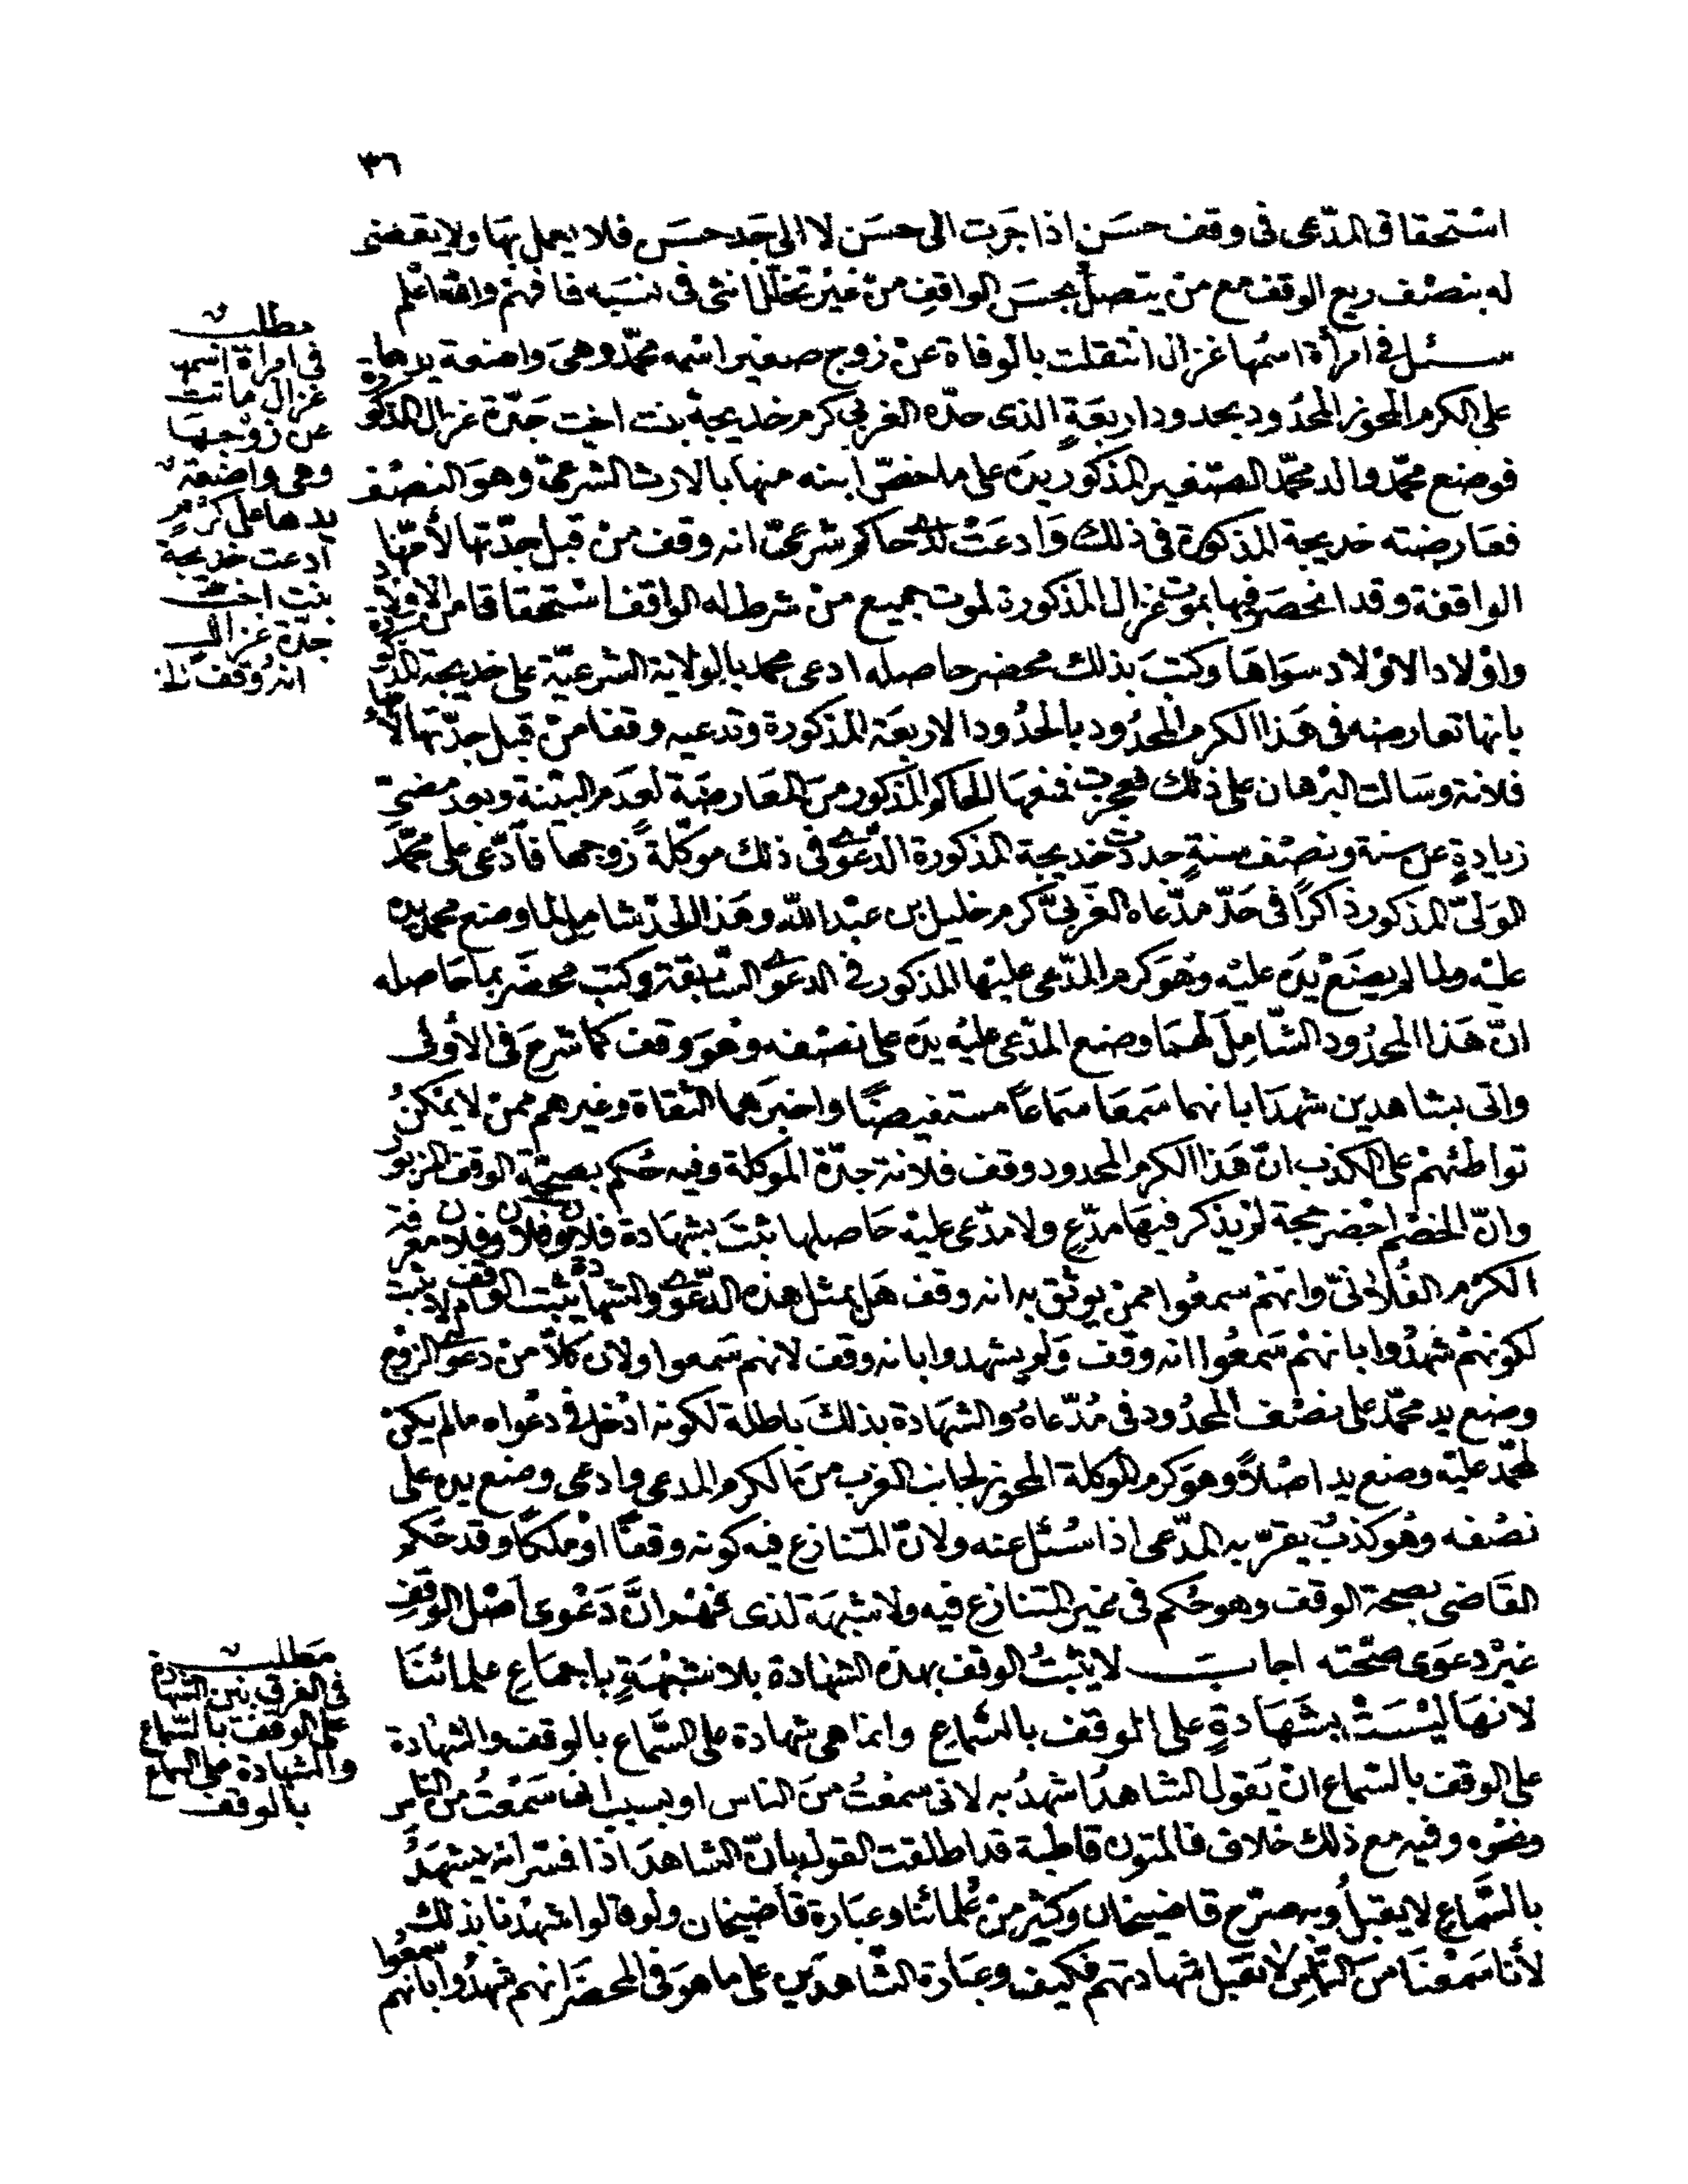 ٣٦
استحقاق المدّعى فى وقف حسَن اذا جَرت الى حسَن لا الى جَد حسَن فلا يعمل بهَا ولا يقضى
له بنصْف ريع الوقف مع من يتصل بحسَن الواقفِ منْ غيْر تخلّل انثى فى نسَبه فافهم والله اعلم
سئل فى امرأة اسمُها غزال انتقلت بالوفاة عنْ زوج صغير اسْمه محمّد وهىَ واضعة يدها
على الكرم المحوز المحدُود بحدود اربعَةٍ الذى حدّه الغربى كرم خديجة بنت اخت جَدّة غزال المذكورة
فوضع محمّد والد محمّد الصّغير المذكور يدَه على ما خصّ ابنه منها بالارث الشرعىّ وهوَ النصْف
فعَارضته خديجة المذكورة فى ذلك وَادعَتْ لدى حاكم شرعىّ انه وقف منْ قبل جدّتها لأمّها
الواقفة وقد انحصَر فيها بموت غزال المذكورة لموت جميع منْ شرط له الواقف استحقاقا من الاولاد
واوْلاد الاوْلاد سوَاهَا وكتبَ بذلك محضر حاصله ادعى محمد بالولاية الشرعيّة على خديجة المذكورة
بانها تعارضه فى هَذا الكرم المحدُود بالحدُود الاربعَة المذكورة وتدعيه وقفا منْ قبل جدّتهَا لأمّها
فلانة وسَالت البرْهان على ذلك فعجزت فمنعهَا الحاكم المذكور منَ المعَارضَة لعَدَم البيّنة وبعد مضىّ
زيادةٍ عن سنة ونصْف سنةٍ جددت خديجة المذكورة الدّعوى فى ذلك موكّلةً زوجها فادّعى على محمّد
الوَلىّ المذكور ذاكرًا فى حَدّ مدّعاه الغَربىّ كرم خليل بن عبْد الله وهَذا الحدّ شامل لما وضع محمد يده
عليْه ولما لم يضَعْ يدَه عليْه وهُوَ كرم المدّعى عليْها المذكور فى الدعوى السّابقة وكتب محضَر بما حَاصله
انّ هَذا المحدُود الشّامِلَ لهمَا وضع المدّعى عليْه يدَه على نصْفه وهوَ وقف كما شرحَ فى الأولى
واتى بشاهدين شهدَا بانهما سَمعَا سمَاعًا مستفيضًا واخبرَهما الثقاة وغيرهم ممن لا يمكنُ
تواطئهمْ على الكذب انّ هَذا الكرم المحدود وقف فلانة جدّة الموكلة وفيه حُكم بصحّة الوقف المزبور
وانّ الخصْم احْضر حجة لم يذكر فيهَا مدّعٍ ولا مدّعى عليْه حَاصلها ثبتَ بشهَادة فلان وفلان وفلان معرفة
الكرْم الفُلانىّ وانهمْ سمعُوا ممنْ يوثق به انه وقف هَل بمثل هذه الدّعوى والشهادة يثبت الوقف ام لا يثبت
لكونهمْ شهدُوا بانهمْ سَمعُوا انه وقف وَلم يشهدوا بانه وقف لانهم سَمعوا ولان كلاًّ منْ دعوى الزوج
وضع يد محمّد على نصْف المحدُود فى مُدّعاهُ والشهَادة بذلكَ باطلة لكونه ادْخل فى دعْواه ما لم يكنْ
لمحمّد عليْه وضع يد اصْلاً وهوَ كرم الموكلة المحوز لجانب الغرب منَ الكرم المدعى وادعى وضع يده على
نصْفه وهُو كذبٌ يقرّ به المدّعى اذا سُئل عنه ولانّ المتنازع فيه كونه وقفًا اوْ ملكًا وقد حَكم
القَاضى بصحّة الوقف وهو حُكم فى غير المتنازع فيه ولا شبهَة لذى فهْم انَّ دَعْوى اصْل الوقفِ
غيْر دعوَى صحّته اجاب لا يثبتُ الوقف بهذه الشهادة بلا شبْهَةٍ باجماع علمائنَا
لانهَا ليْسَتْ بشَهَادةٍ على الوقف بالسّماعِ وانما هى شهادة على السَّماع بالوقف والشهَادة
على الوقف بالسّماع انْ يَقول الشاهد اشهدُ به لانى سمعْتُ منَ الناس او بسبب انى سَمعْتُ من الناس
ونحْوه وفيه مع ذلك خلاف فالمتون قاطبة قد اطلقت القول بانّ الشاهدَ اذا فسّر انه يشهَدُ
بالسَّماعِ لا يقبلُ وبه صرّح قاضيخان وكثير منْ عُلمائنا وعبَارة قاضيخان ولو قالوا شهدْنا بذلك
لأنا سَمعْنَا منَ النّاسِ لا تقبل شهادتهم فكيف وعبَارة الشّاهدَين على ما هوَ فى المحضَر انهم شهدُوا بانهم سمعُوا
مطلب
فى امرأة اسمها
غزال ماتت
عن زوْجهَا
وهى واضعة
يدها على كرْم
ادعت خديجة
بنت اخت
جدّة غزال
انه وقف
مَطلب
فى الفرق بيْن الشهادة
على الوقف بالسّماع
والشهادة على السماع
بالوقف